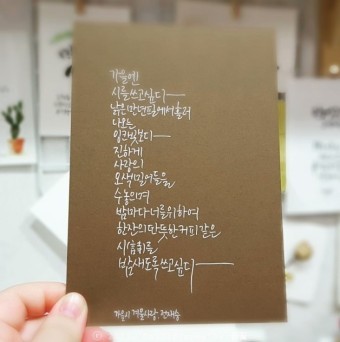 가을엔
시를 쓰고싶다
낡은 만년필에서 흘러
나오는
잉크빛보다
진하게
사랑의
오색 밀어들을
수놓으며
밤마다 너를 위하여
한잔의 따뜻한 커피같은
시(詩)를
밤새도록 쓰고싶다
가을시 겨울사랑. 전재승